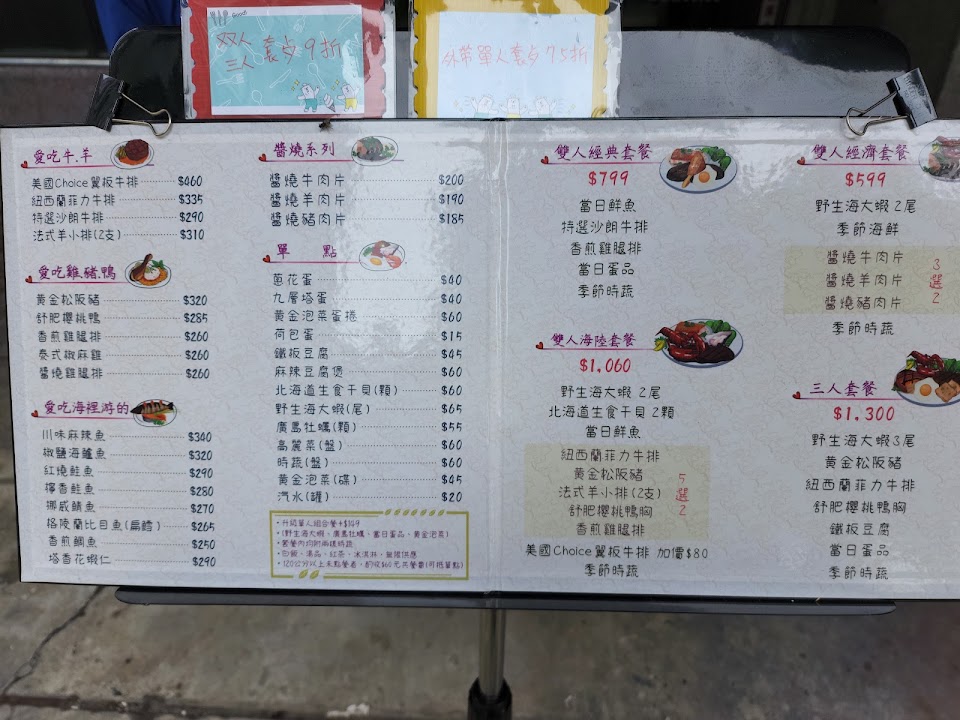 Good
双人
三人 套歺 9折
外帶單人套歺 75折
愛吃牛.羊
美國Choice翼板牛排 $460
紐西蘭菲力牛排 $335
特選沙朗牛排 $290
法式羊小排(2支) $310
愛吃雞.豬.鴨
黃金松阪豬 $320
舒肥櫻桃鴨 $285
香煎雞腿排 $260
泰式椒麻雞 $260
醬燒雞腿排 $260
愛吃海裡游的
川味麻辣魚 $340
椒鹽海鱸魚 $320
紅燒鮭魚 $290
檸香鮭魚 $280
挪威鯖魚 $270
格陵蘭比目魚(扁鱈) $265
香煎鯛魚 $250
塔香花蝦仁 $290
醬燒系列
醬燒牛肉片 $200
醬燒羊肉片 $190
醬燒豬肉片 $185
單 點
蔥花蛋 $40
九層塔蛋 $40
黃金泡菜蛋捲 $60
荷包蛋 $15
鐵板豆腐 $45
麻辣豆腐煲 $60
北海道生食干貝(顆) $60
野生海大蝦(尾) $65
廣島牡蠣(顆) $55
高麗菜(盤) $60
時蔬(盤) $60
黃金泡菜(碟) $45
汽水(罐) $20
•升級單人組合餐+$149
•(野生海大蝦、廣島牡蠣、當日蛋品、黃金泡菜)
•套餐內均附兩樣時蔬
•炒飯、湯品、紅茶、冰淇淋，無限供應
•120公分以上未點餐者，酌收$60元共餐費(可抵單點)
雙人經典套餐
$799
當日鮮魚
特選沙朗牛排
香煎雞腿排
當日蛋品
季節時蔬
雙人海陸套餐
$1,060
野生海大蝦 2尾
北海道生食干貝 2顆
當日鮮魚
紐西蘭菲力牛排
黃金松阪豬
法式羊小排(2支)
舒肥櫻桃鴨胸
香煎雞腿排
5選2
美國Choice翼板牛排 加價$80
季節時蔬
雙人經濟套餐
$599
野生海大蝦 2尾
季節海鮮
醬燒牛肉片
醬燒羊肉片
醬燒豬肉片
3選2
季節時蔬
三人套餐
$1,300
野生海大蝦3尾
黃金松阪豬
紐西蘭菲力牛排
舒肥櫻桃鴨胸
鐵板豆腐
當日蛋品
季節時蔬